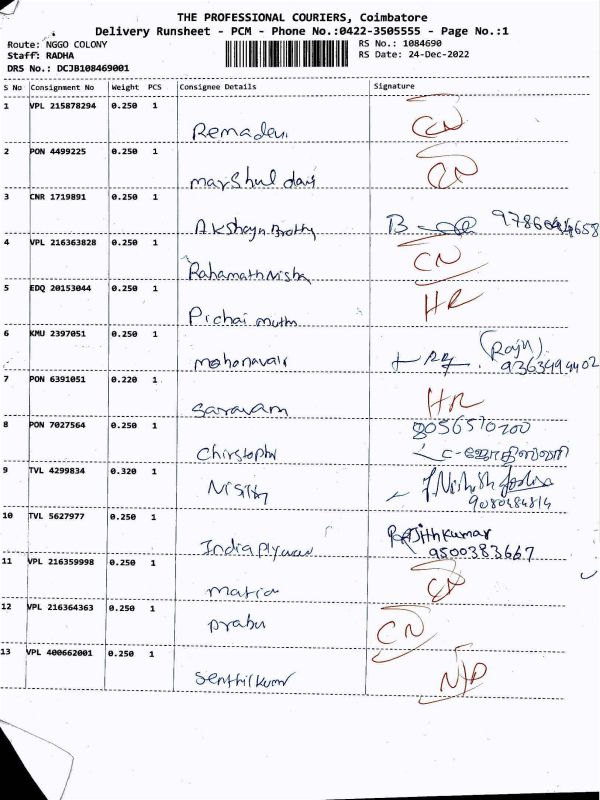 THE PROFESSIONAL COURIERS, Coimbatore
Delivery Runsheet - PCM - Phone No.:0422-3505555 - Page No.:1
Route: NGGO COLONY RS No.: 1084690
Staff: RADHA RS Date: 24-Dec-2022
DRS No.: DCJB108469001
S No Consignment No Weight PCS Consignee Details Signature
1 VPL 215878294 0.250 1
Remadevi CN
2 PON 4499225 0.250 1
marshul davi CN
3 CNR 1719891 0.250 1
Akshaya Brothy B
4 VPL 216363828 0.250 1
Rahamath Nisha CN
5 EDQ 20153044 0.250 1
Pichai muthu HR
6 KMU 2397051 0.250 1
mohanavali (Raju) 9363494402
7 PON 6391051 0.220 1
Saravam HR
8 PON 7027564 0.250 1 8056570700
Chirstopher
9 TVL 4299834 0.320 1
Nisith 9080484814
10 TVL 5627977 0.250 1
Rajithkumar
9500383667
11 VPL 216359998 0.250 1
maria CN
12 VPL 216364363 0.250 1
prabu CN
13 VPL 400662001 0.250 1
Senthilkumar N/P